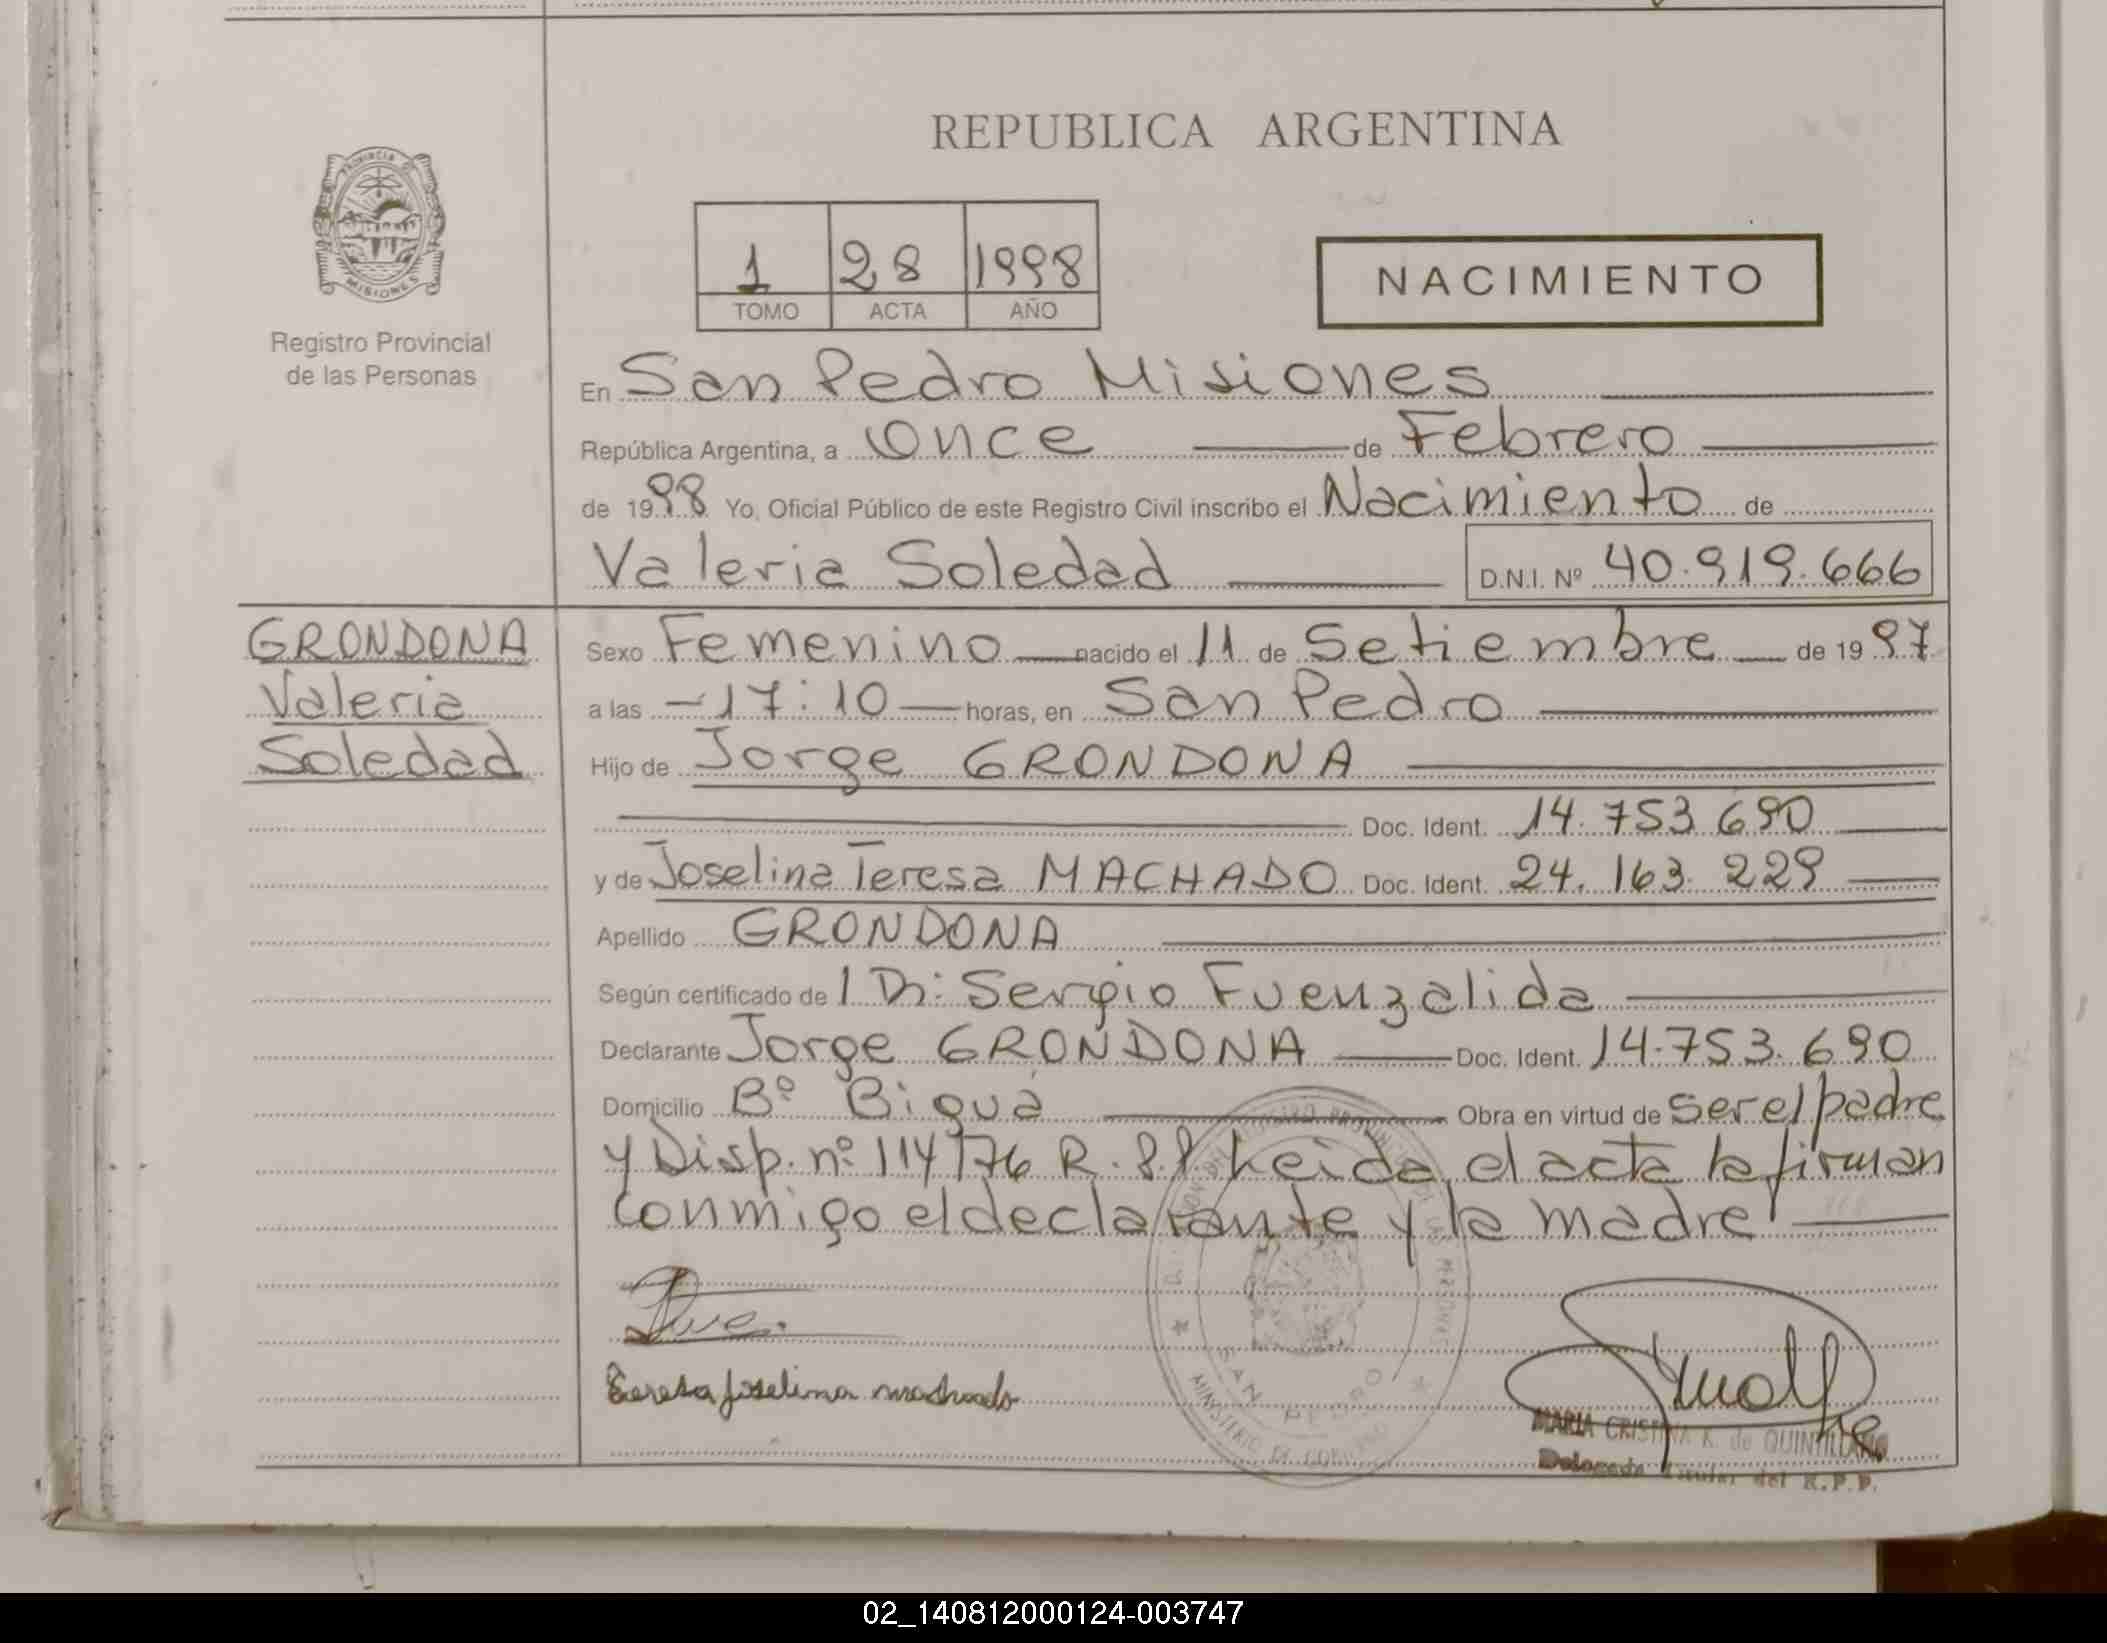 REPUBLICA ARGENTINA
PROVINCIA DE
MISIONES
Registro Provincial
de las Personas
1 28 1998
TOMO ACTA AÑO
NACIMIENTO
En San Pedro Misiones
República Argentina, a Once de Febrero
de 1998 Yo, Oficial Público de este Registro Civil inscribo el Nacimiento de
Valeria Soledad D.N.I. Nº 40.919.666
GRONDONA
Valeria
Soledad
Sexo Femenino nacido el 11 de Setiembre de 1997
a las -17:10 horas, en San Pedro
Hijo de Jorge GRONDONA
Doc. Ident. 14.753.690
y de Joselina Teresa MACHADO Doc. Ident. 24.163.229
Apellido GRONDONA
Según certificado de 1 Dr: Sergio Fuenzalida
Declarante Jorge GRONDONA Doc. Ident. 14.753.690
Domicilio Bº Biguá Obra en virtud de ser el padre
y Disp. nº 114/76 R.P.P. Leída el acta la firman
conmigo el declarante y la madre
Teresa Joselina machado
SAN PEDRO
MINISTERIO DE GOBIERNO
MARIA CRISTINA K. de QUINTILLANO
Delegada Titular del R.P.P.
02_140812000124-003747